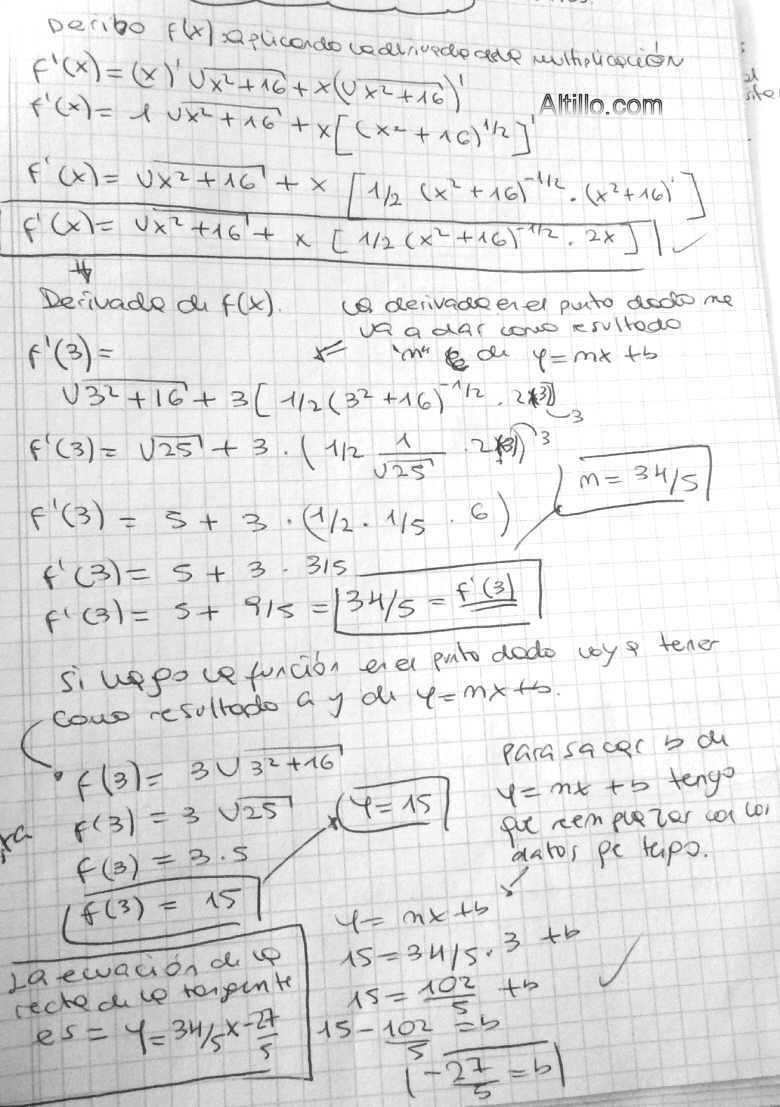 Deribo f(x) aplicando la derivada de la multiplicación
f'(x)= (x)' √x²+16 + x(√x²+16)'
Altillo.com
f'(x)= 1 √x²+16 + x[(x²+16)^1/2]'
f'(x)= √x²+16 + x [1/2 (x²+16)^-1/2 . (x²+16)']
f'(x)= √x²+16 + x [1/2 (x²+16)^-1/2 . 2x]
Derivada de f(x).
La derivada en el punto dado me
va a dar como resultado
"m" de y=mx+b
f'(3)=
√3²+16 + 3[1/2(3²+16)^-1/2 . 2(3)]
3
f'(3)= √25 + 3 . (1/2 1/√25 . 2(3))
3
m=34/5
f'(3) = 5 + 3 . (1/2 . 1/5 . 6)
f'(3)= 5 + 3 . 3/5
f'(3)= 5 + 9/5 = 34/5 = f'(3)
Si hago la función en el punto dado voy a tener
como resultado a y de y=mx+b.
f(3)= 3√3²+16
f(3) = 3 √25
f(3) = 3.5
f(3) = 15
y=15
para sacar b de
y=mx+b tengo
que remplazar con los
datos que tengo.
y= mx+b
15=34/5.3 +b
15=102/5 +b
15-102/5=b
-27/5=b
La ecuación de la
recta de la tangente
es= y=34/5x-27/5